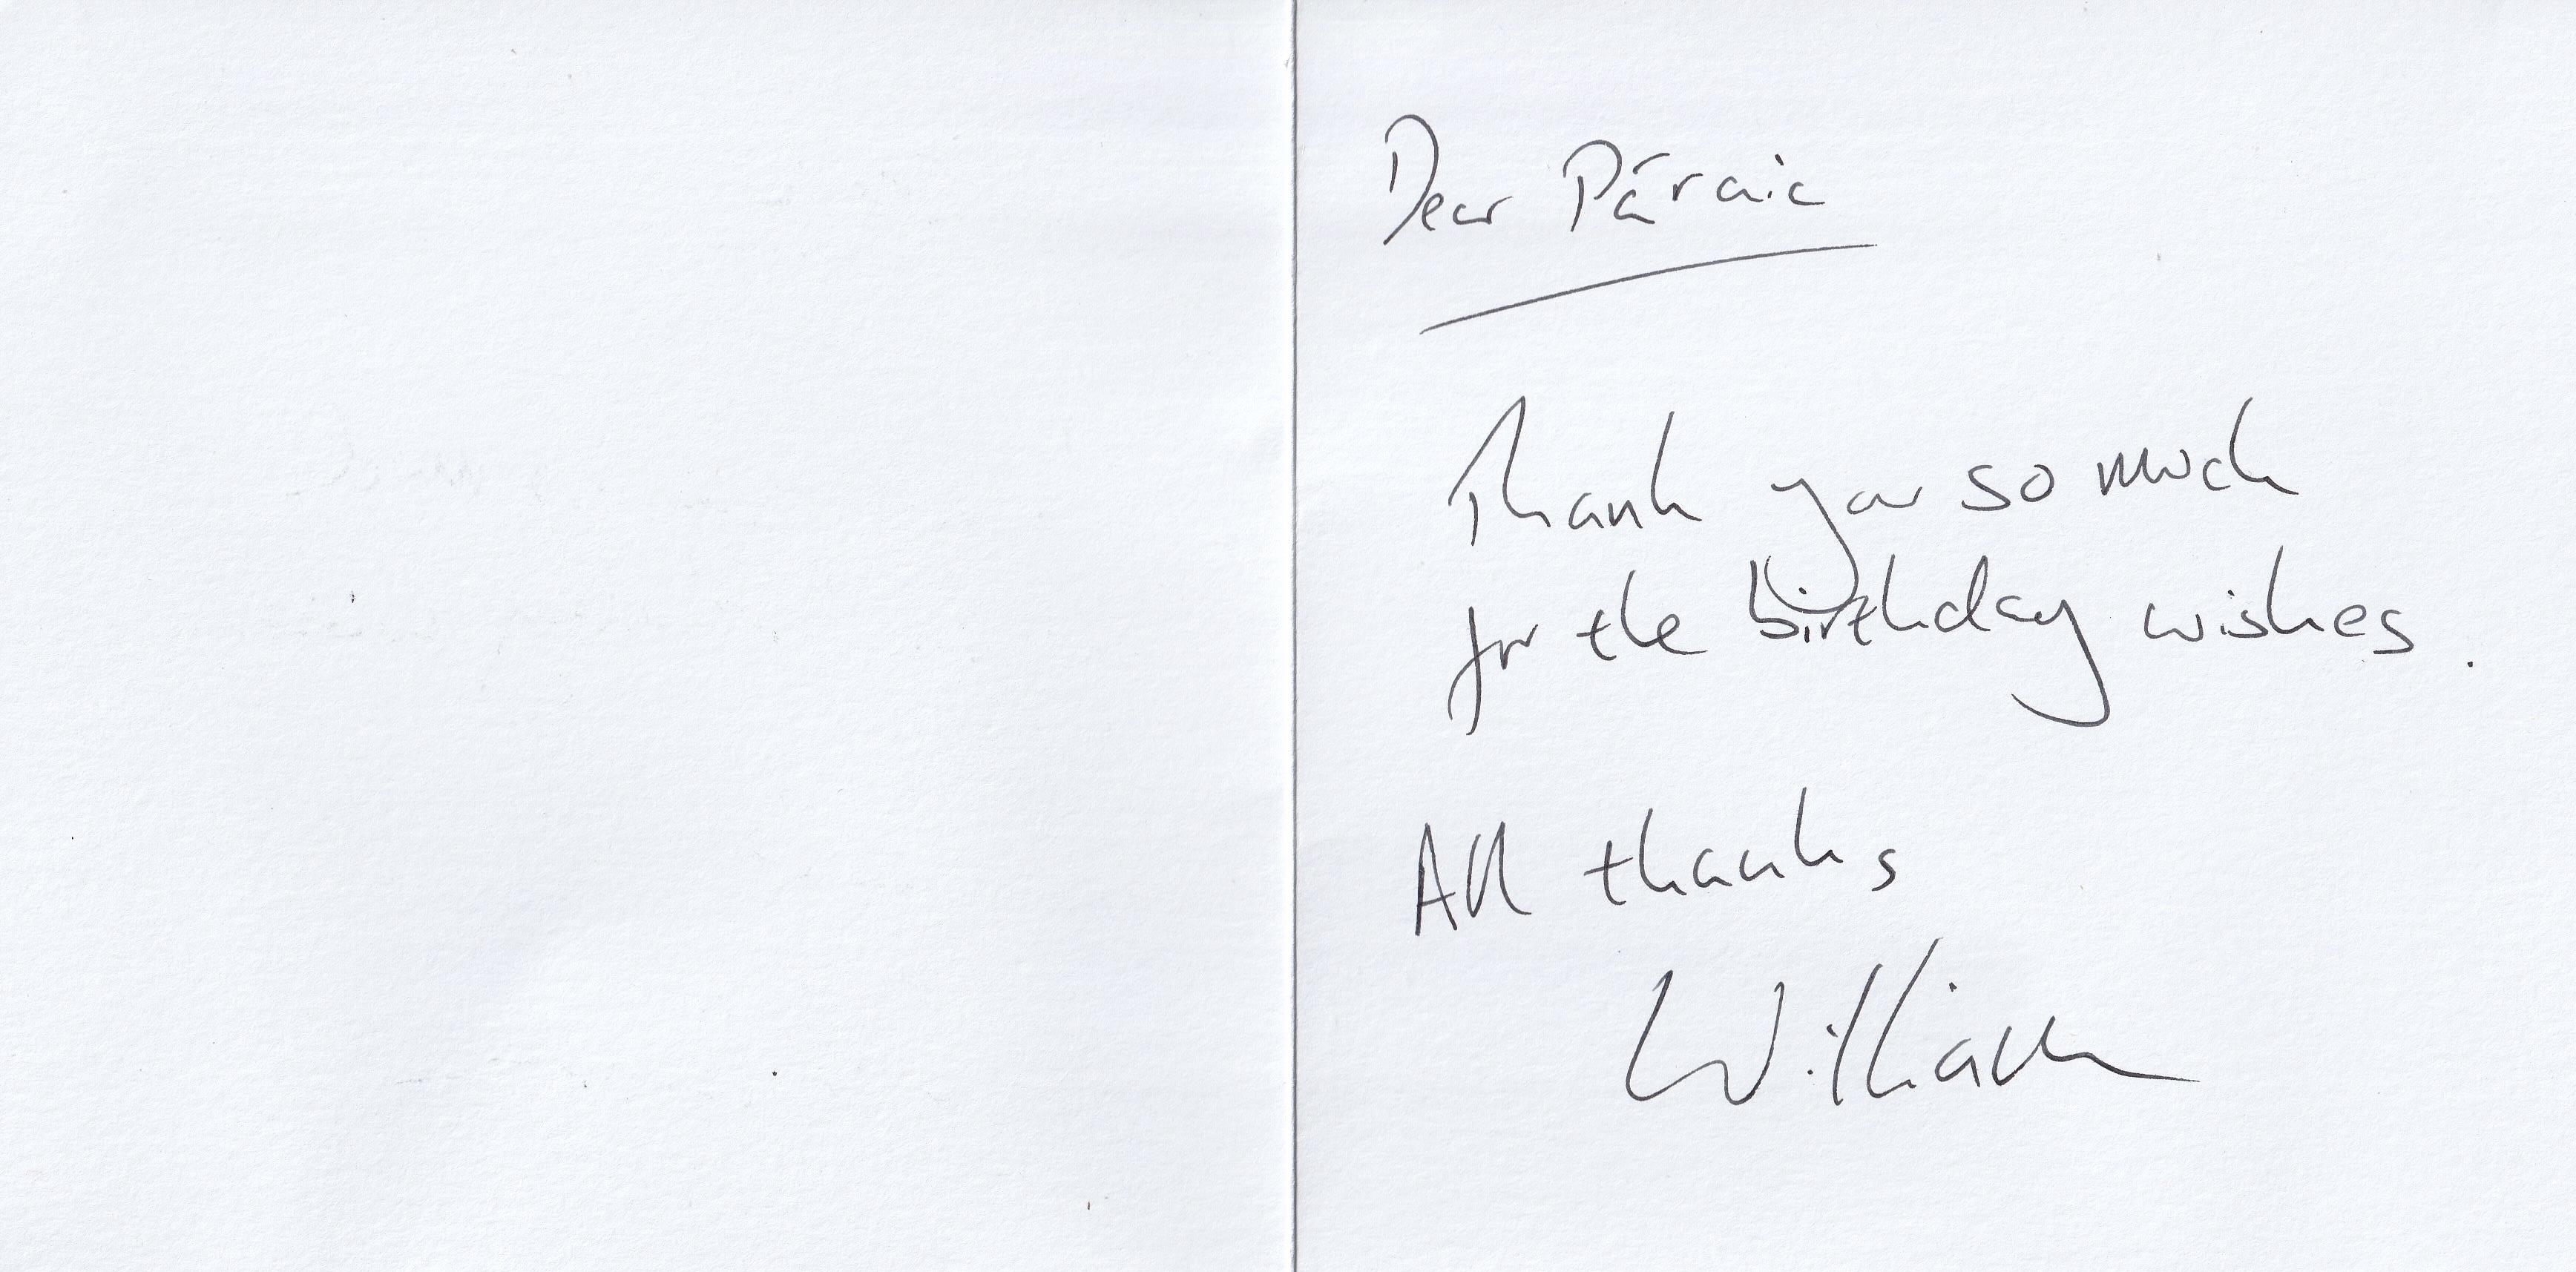 Dear Páraic
Thank you so much
for the birthday wishes.
All thanks
William